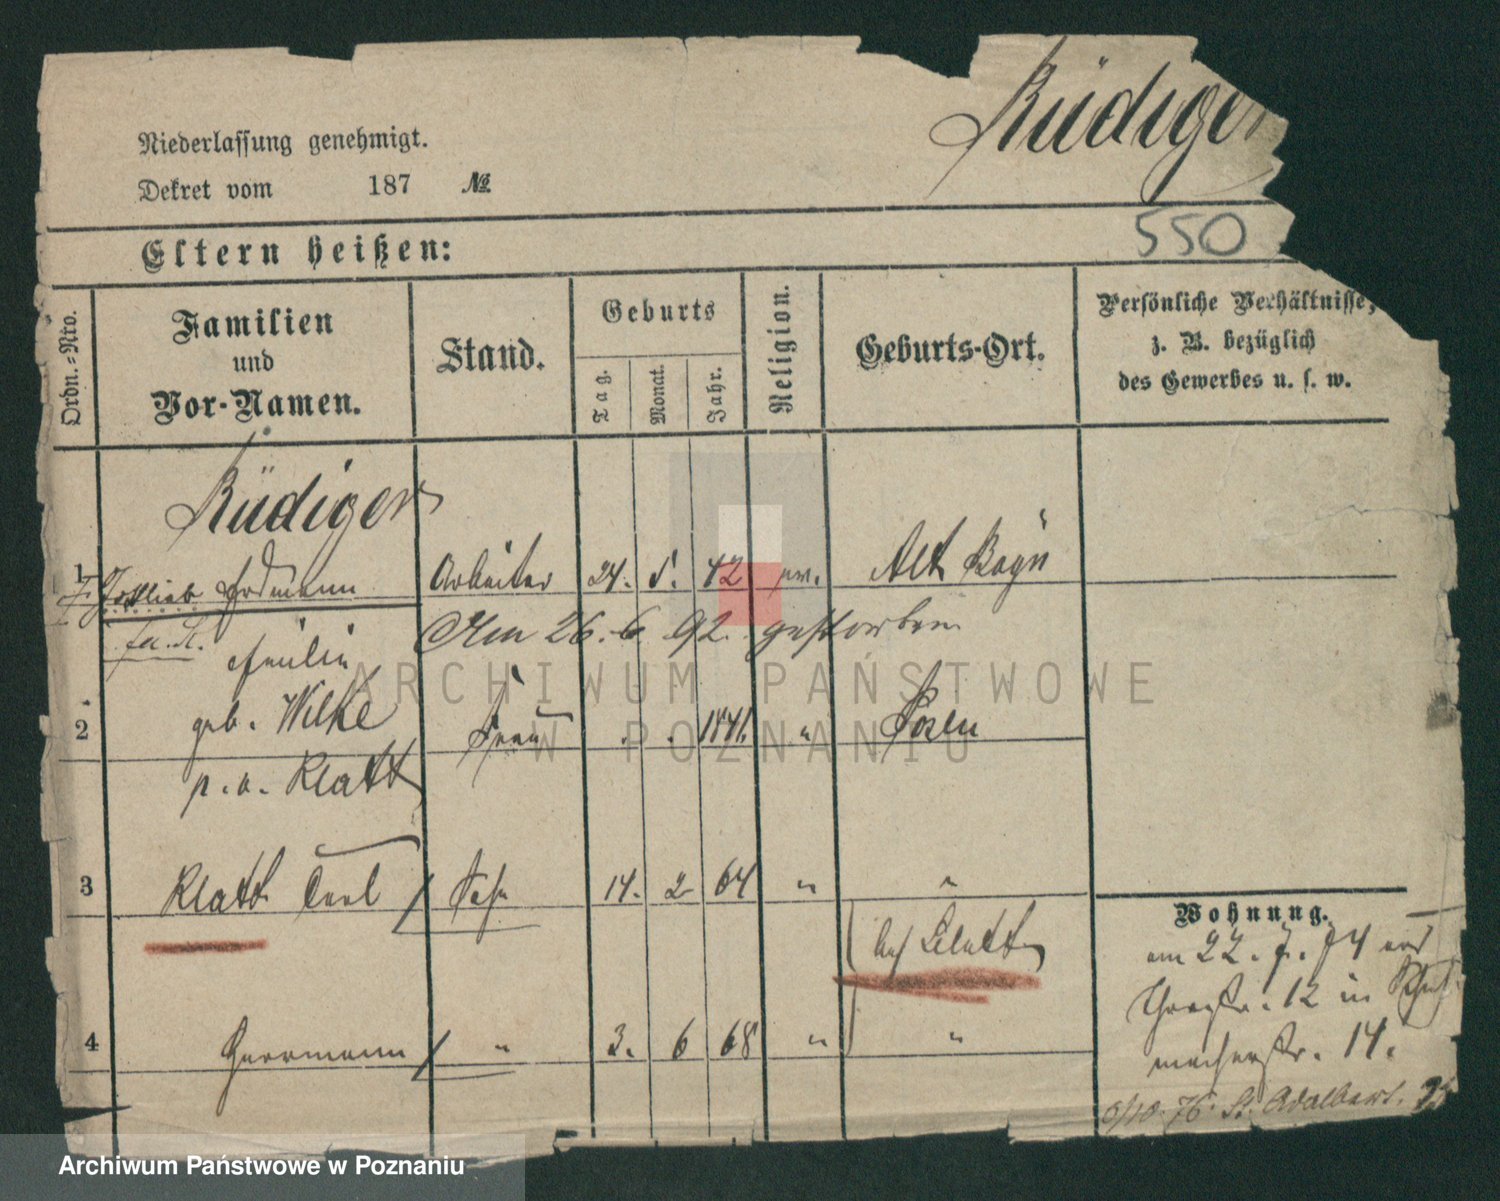 Rüdiger
Niederlassung genehmigt.
Dekret vom 187 №
550
Eltern heißen:
Ordn.-Nro.
Familien
und
Vor-Namen.
Stand.
Geburts
Tag.
Monat.
Jahr.
Religion.
Geburts-Ort.
Persönliche Verhältnisse,
z. B. bezüglich
des Gewerbes u. s. w.
Rüdiger
1 Gottlieb Erdmann Arbeiter 24. 5. 42 ev. Alt
Am 26. 6. 92. gestorben
geb. Wilke
2 Frau 1841. " Posen
p. v. Klatt
3 Klatt Carl / Sohn 14. 2 64 " "
Wohnung.
am 22. 7. 74 aus
12 in
4 Herrmann / " 3. 6 68 " "
macherstr. 14.
6/10. 76. St. Adalbert.
ARCHIWUM PAŃSTWOWE
W POZNANIU
Archiwum Państwowe w Poznaniu